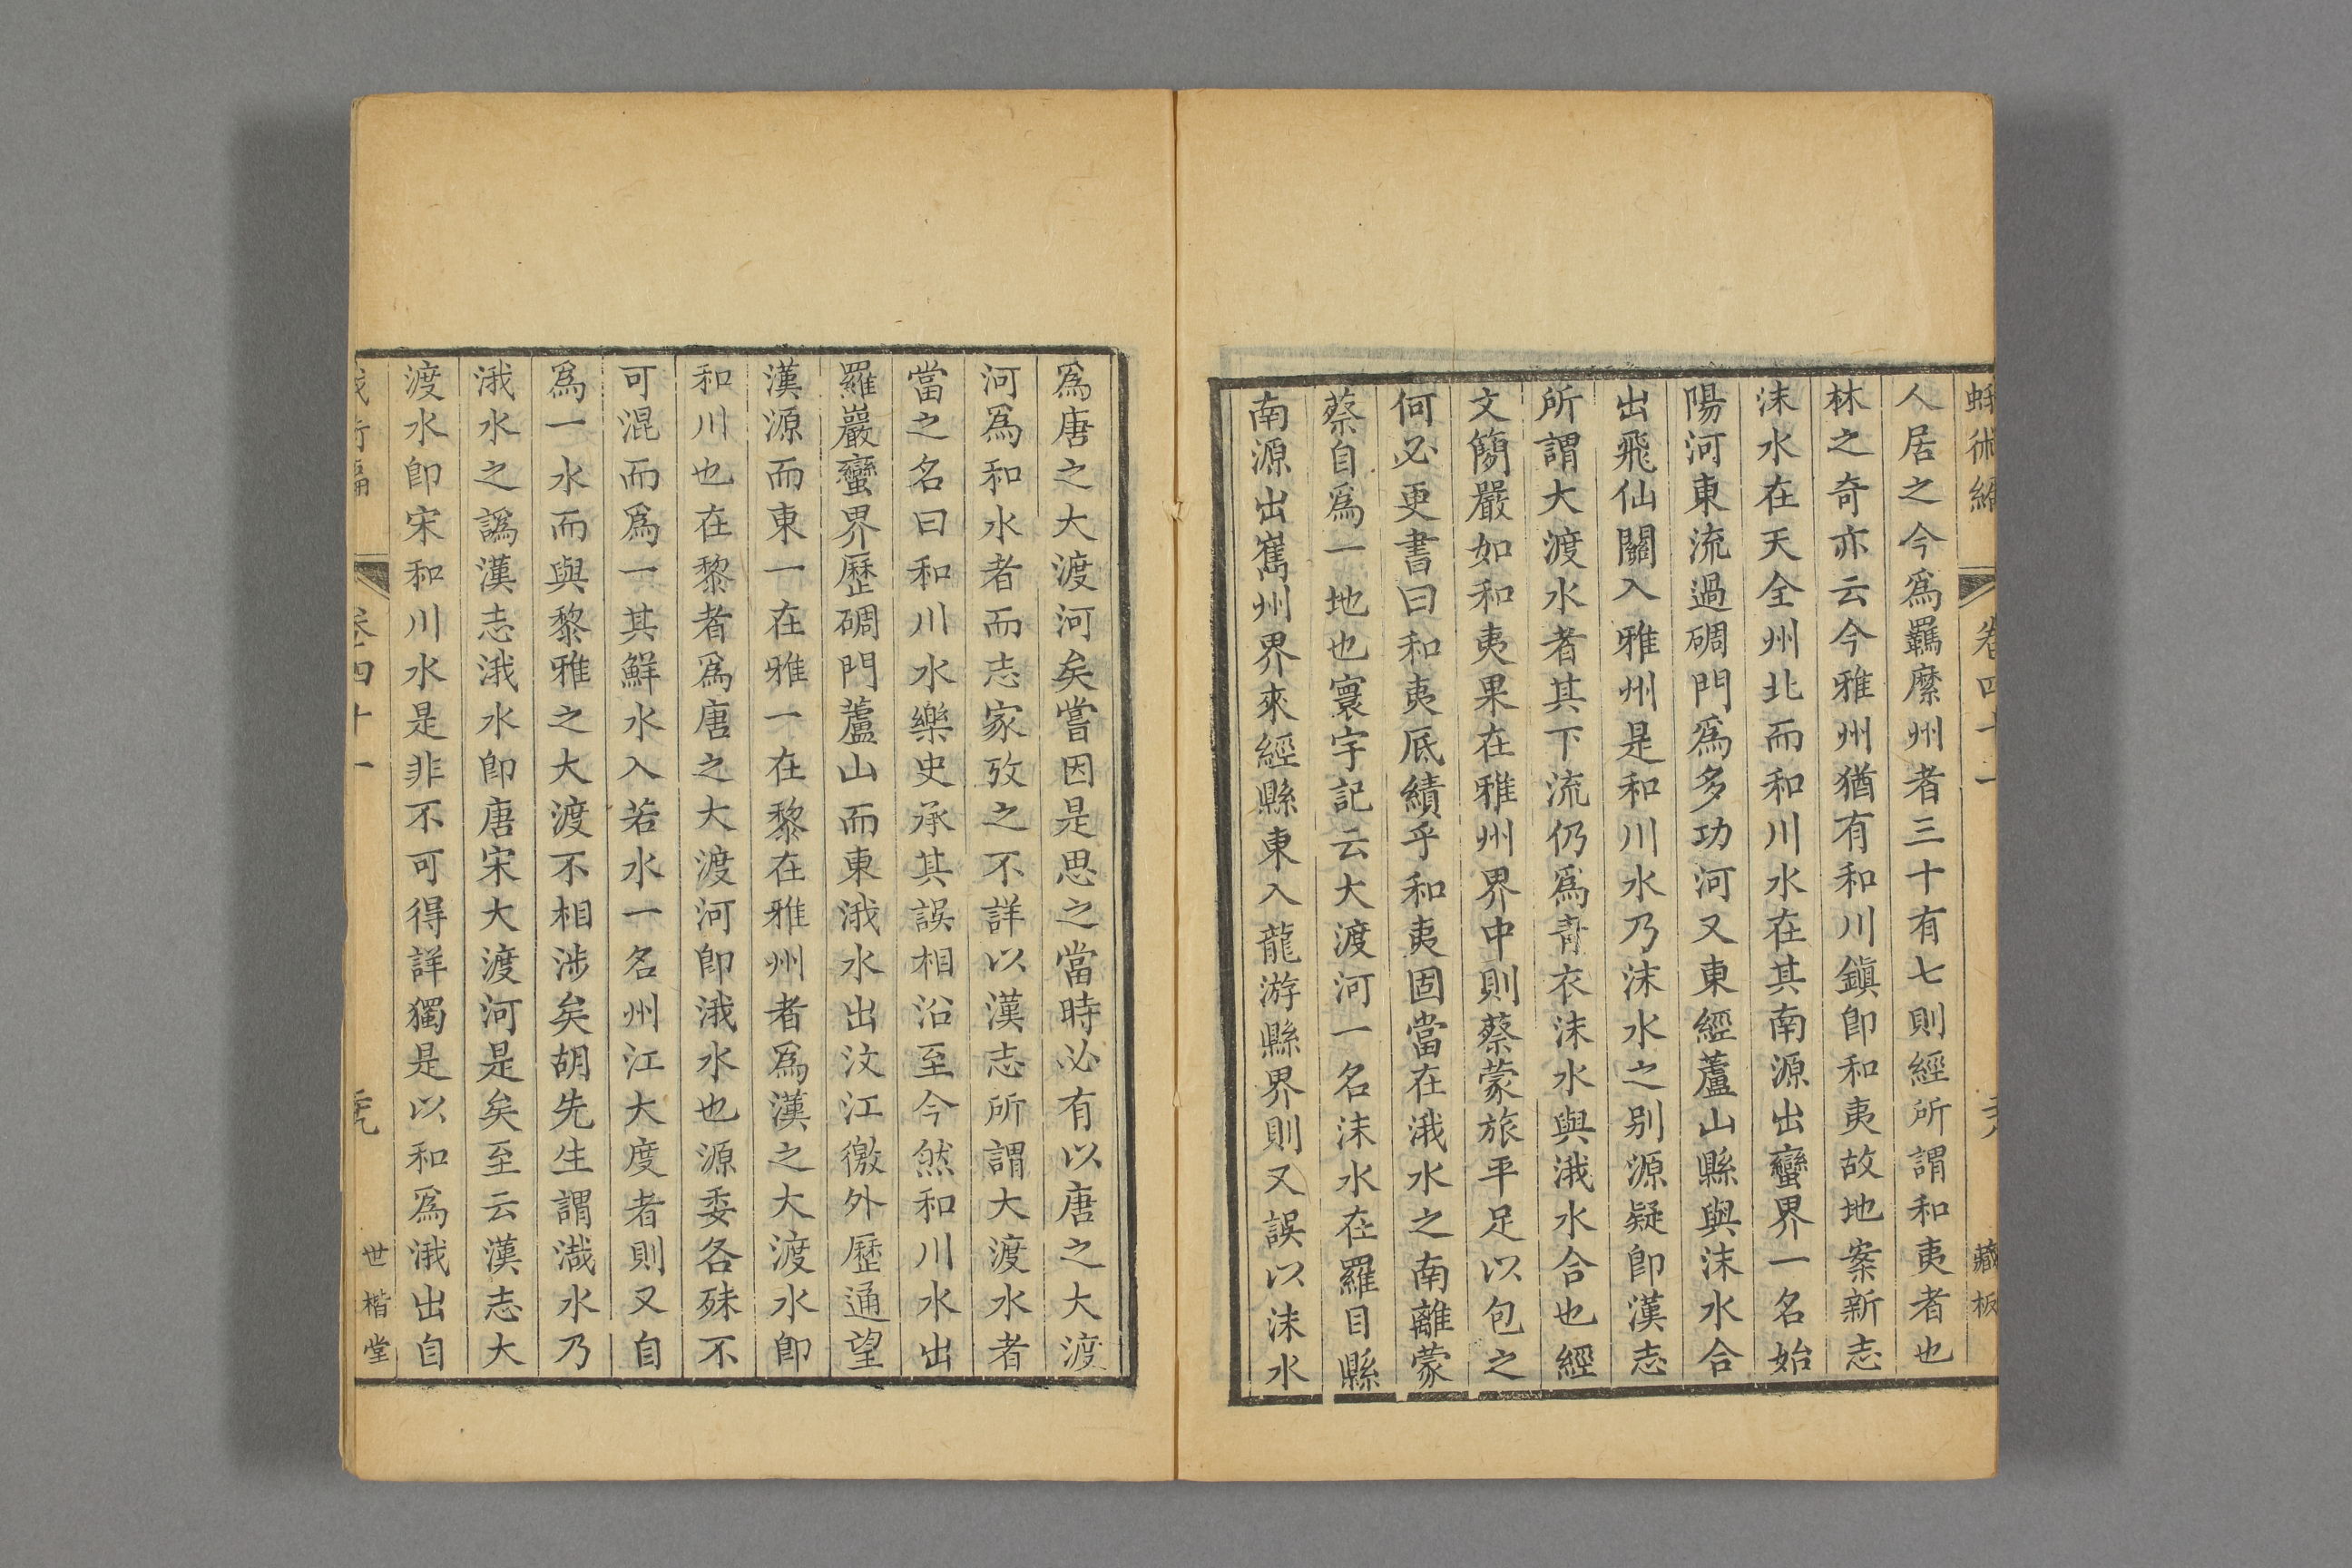 蛾術編 卷四十一 藏板
人居之今爲羈縻州者三十有七則經所謂和夷者也
林之奇亦云今雅州猶有和川鎭卽和夷故地案新志
沫水在天全州北而和川水在其南源出蠻界一名始
陽河東流過碉門爲多功河又東經蘆山縣與沫水合
出飛仙關入雅州是和川水乃沫水之别源疑卽漢志
所謂大渡水者其下流仍爲靑衣沫水與涐水合也經
文簡嚴如和夷果在雅州界中則蔡蒙旅平足以包之
何必更書曰和夷厎績乎和夷固當在涐水之南離蒙
蔡自爲一地也寰宇記云大渡河一名沫水在羅目縣
南源出巂州界來經縣東入龍游縣界則又誤以沫水
爲唐之大渡河矣嘗因是思之當時必有以唐之大渡
河爲和水者而志家攷之不詳以漢志所謂大渡水者
當之名曰和川水樂史承其誤相沿至今然和川水出
羅巖蠻界歷碉門蘆山而東涐水出汶江徼外歷通望
漢源而東一在雅一在黎在雅州者爲漢之大渡水卽
和川也在黎者爲唐之大渡河卽涐水也源委各殊不
可混而爲一其鮮水入若水一名州江大度者則又自
爲一水而與黎雅之大渡不相涉矣胡先生謂渽水乃
涐水之譌漢志涐水卽唐宋大渡河是矣至云漢志大
渡水卽宋和川水是非不可得詳獨是以和爲涐出自
卷四十一 世楷堂